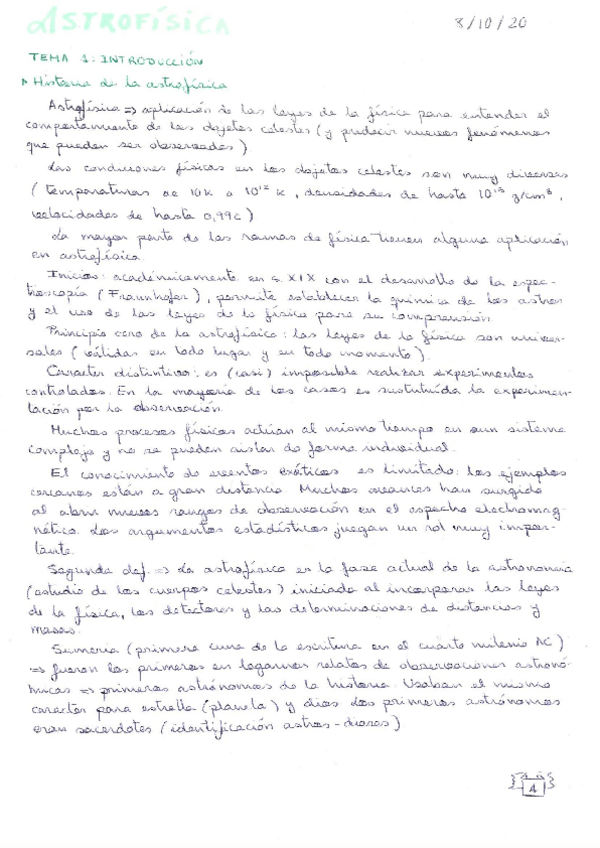 ASTROFÍSICA 8/10/20
TEMA 1: INTRODUCCIÓN
Historia de la astrofísica
Astrofísica => aplicación de las leyes de la física para entender el
comportamiento de los objetos celestes (y predecir nuevos fenómenos
que puedan ser observados)
Las condiciones físicas en los objetos celestes son muy diversas
(temperaturas de 10K a 10¹² K, densidades de hasta 10¹⁵ g/cm³,
velocidades de hasta 0,99c)
La mayor parte de las ramas de física tienen alguna aplicación
en astrofísica.
Inicios: académicamente en s. XIX con el desarrollo de la espec-
troscopía (Fraunhofer), permite establecer la química de los astros
y el uso de las leyes de la física para su comprensión
Principio cero de la astrofísica: las leyes de la física son univer-
sales (válidas en todo lugar y en todo momento).
Caracter distintivo: es (casi) imposible realizar experimentos
controlados. En la mayoría de los casos es sustituída la experimen-
tación por la observación.
Muchos procesos físicos actúan al mismo tiempo en un sistema
complejo y no se pueden aislar de forma individual.
El conocimiento de eventos exóticos es limitado: los ejemplos
cercanos están a gran distancia. Muchos avances han surgido
al abrir nuevos rangos de observación en el espectro electromag-
nético. Los argumentos estadísticos juegan un rol muy impor-
tante.
Segunda def. => La astrofísica es la fase actual de la astronomía
(estudio de los cuerpos celestes) iniciada al incorporar las leyes
de la física, los detectores y las determinaciones de distancias y
masas.
Sumeria (primera cuna de la escritura en el cuarto milenio AC)
=> fueron los primeros en legarnos relatos de observaciones astronó-
micas => primeros astrónomos de la historia. Usaban el mismo
caracter para estrella (planeta) y dios. Los primeros astrónomos
eran sacerdotes (identificación astros-dioses)
1